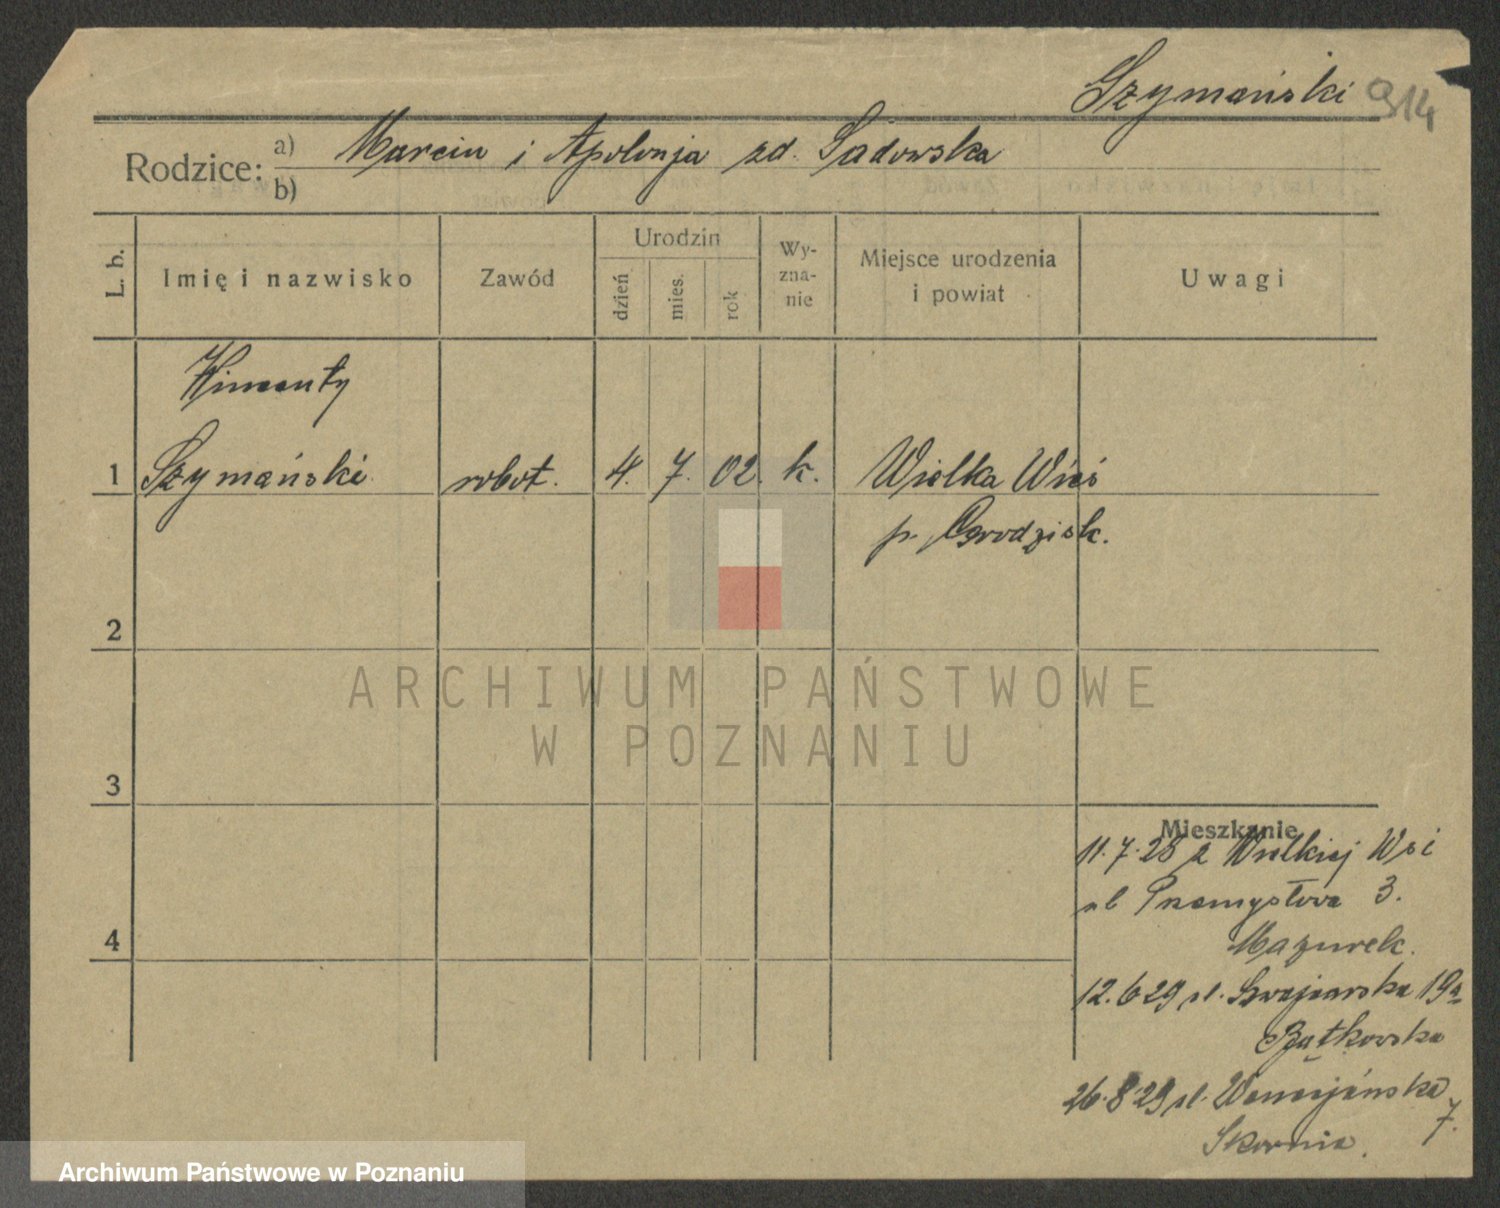 Szymański 914
Rodzice: a) Marcin i Apolonja zd. Sadowska
b)
L. b. Imię i nazwisko Zawód Urodzin dzień mies. rok Wy-zna-nie Miejsce urodzenia i powiat Uwagi
Wincenty
1 Szymański robot. 4. 7. 02. k. Wielka Wieś
p. Grodzisk.
2
ARCHIWUM PAŃSTWOWE
W POZNANIU
3
Mieszkanie
11.7.28 z Wielkiej Wsi
ul Przemysłowa 3.
4
Mazurek.
12.6 29 ul. Szwajcarska 19a
26.8 29 ul. Wenecjańska
7.
Skornia.
Archiwum Państwowe w Poznaniu